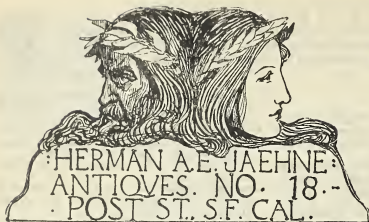 :HERMAN A.E. JAEHNE:
ANTIQVES. NO. 18.-
. POST ST., S.F. CAL.